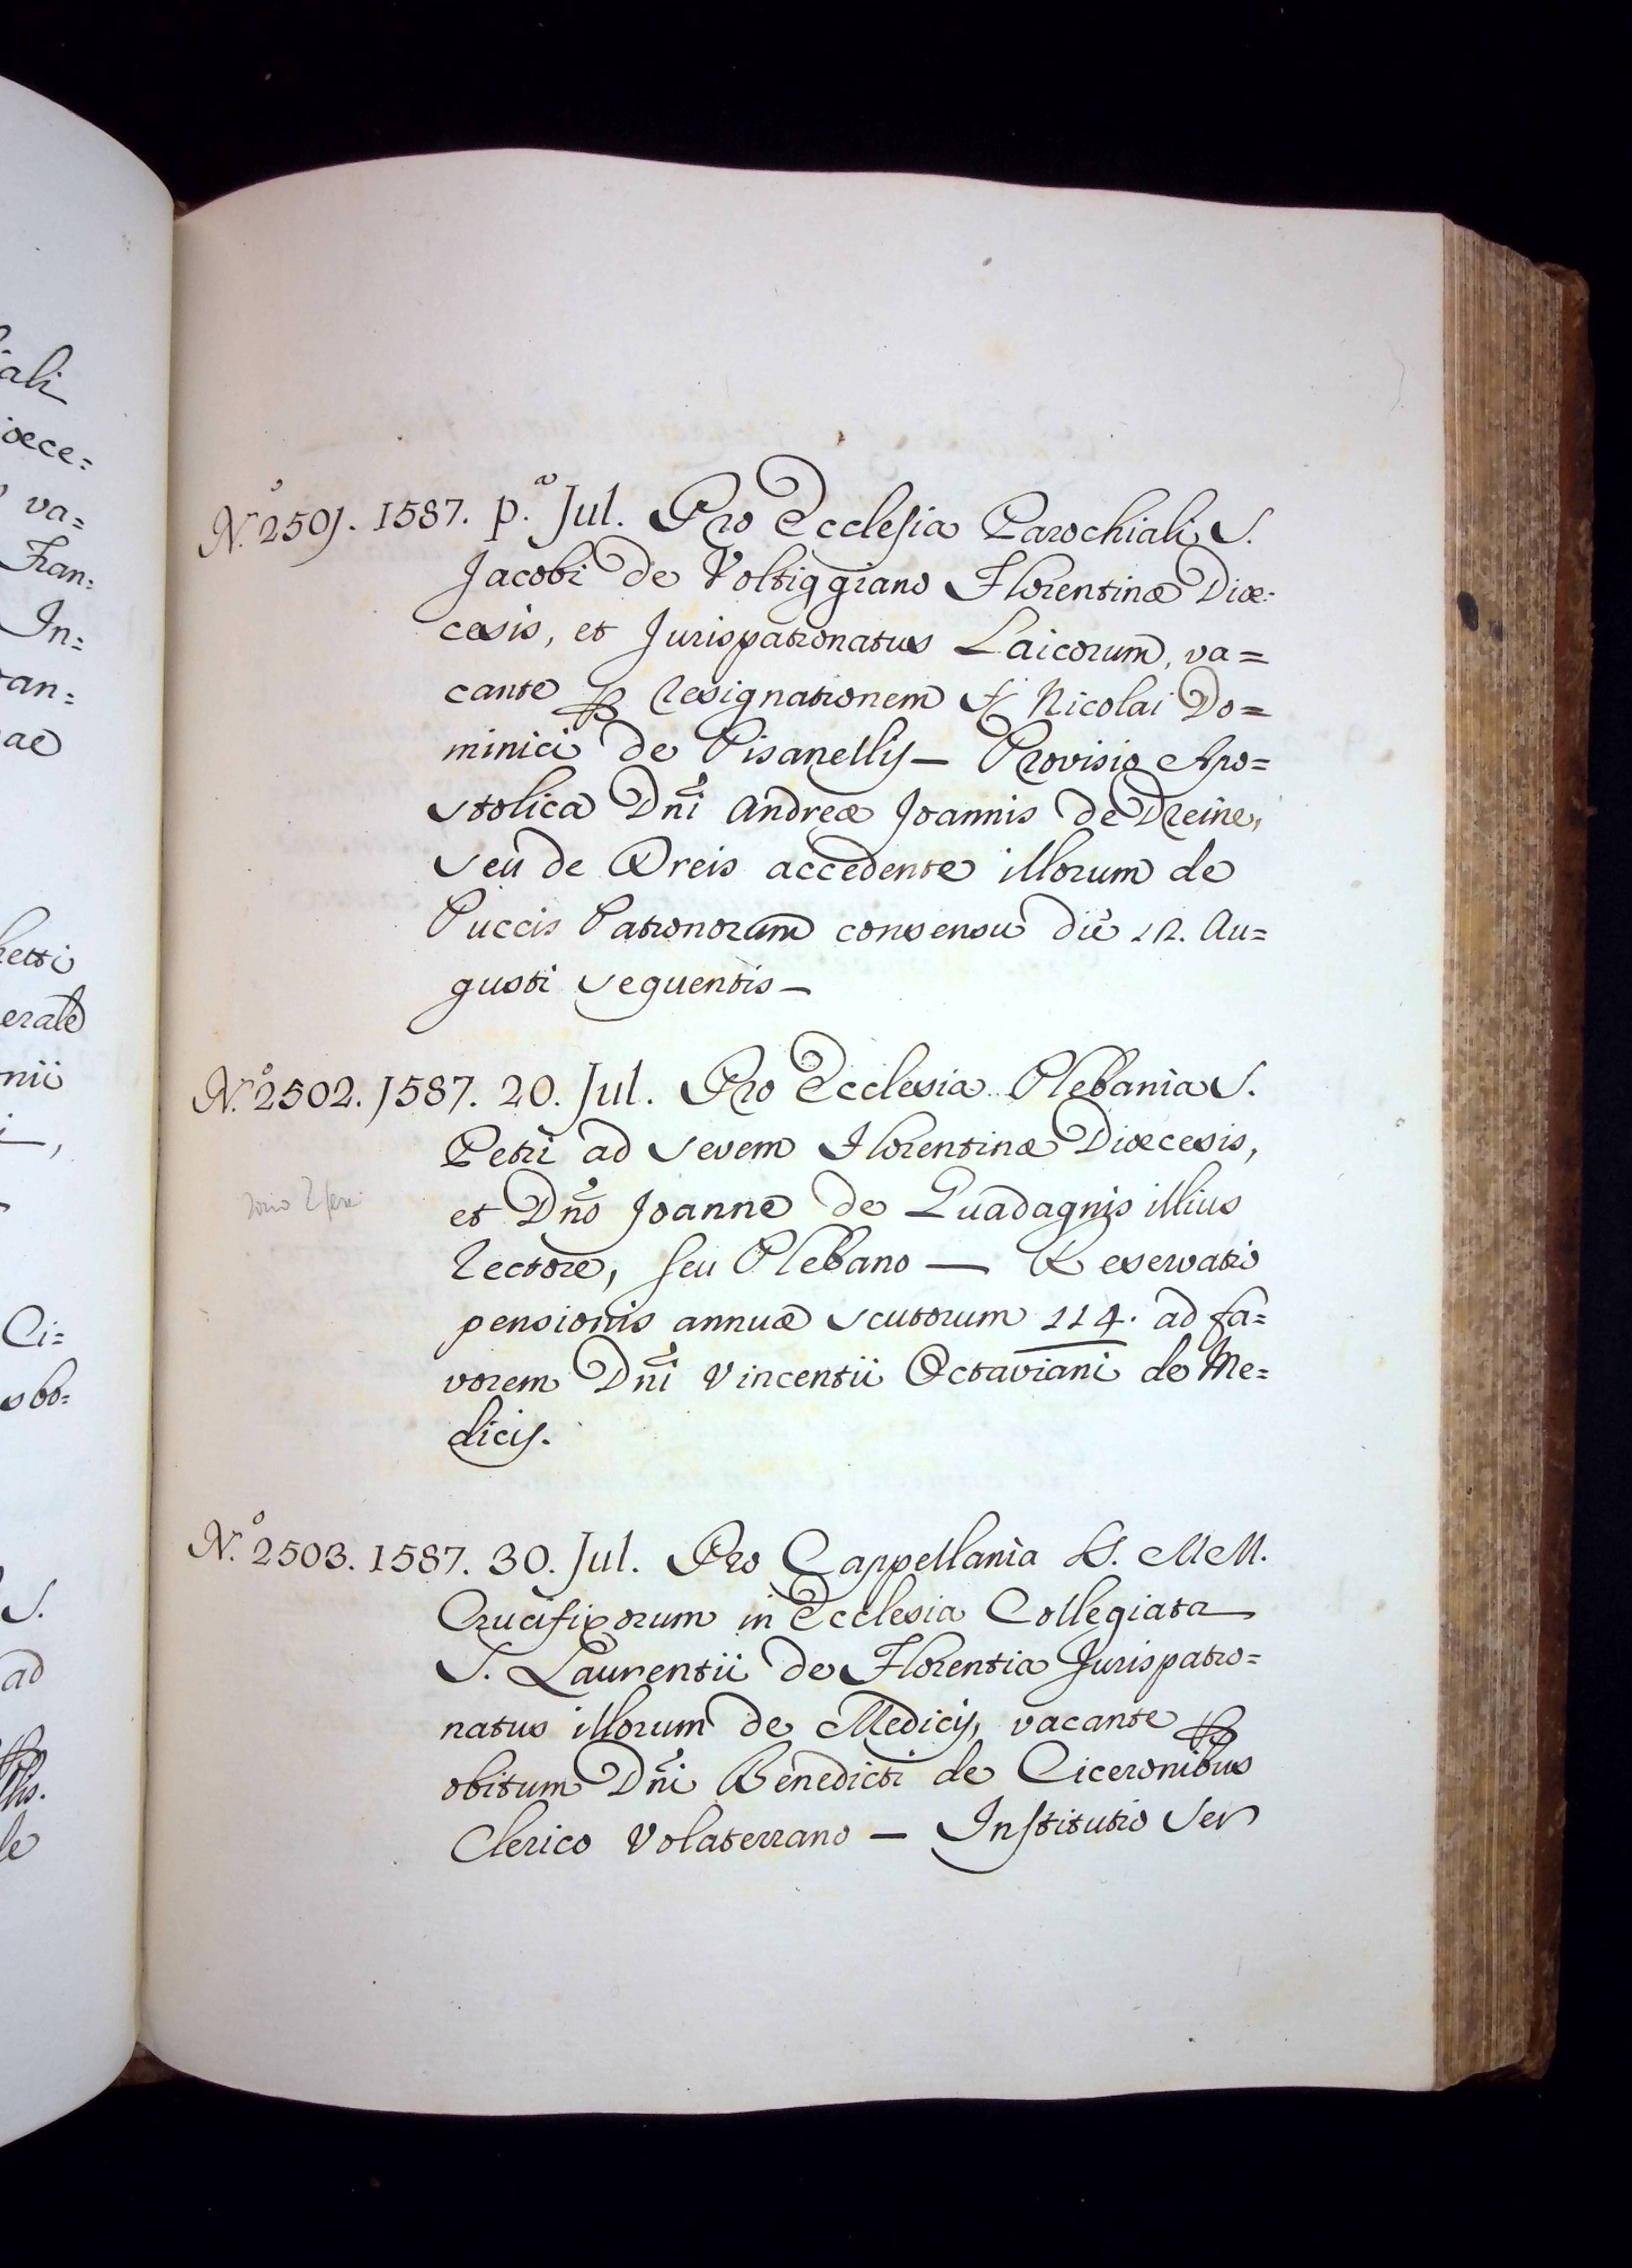 N.º 2501. 1587. p.º Jul. Pro Ecclesia Parochiali S.
Jacobi de Voltiggiano Florentinæ Diœ=
cesis, et Jurispatronatus Laicorum, va=
cante per resignationem Nicolai Do=
minici de Pisanellis — Provisio Apo=
stolica Dñi Andreæ Joannis de
seu de Oreis accedente illorum de
Puccis Patronorum consensu die 12. Au=
gusti sequentis —
N.º 2502. 1587. 20. Jul. Pro Ecclesia Plebania S.
Petri ad Sevem Florentinæ Diœcesis,
et Dño Joanne de Guadagnis illius
rectore, seu Plebano — Reservatio
pensionis annuæ scutorum 114. ad fa=
vorem Dñi Vincentii Octaviani de Me=
dicis.
N.º 2503. 1587. 30. Jul. Pro Cappellania SS. MM.
Crucifixorum in Ecclesia Collegiata
S. Laurentii de Florentia Jurispatro=
natus illorum de Medicis, vacante per
obitum Dñi Benedicti de Ciceronibus
Clerico Volaterrano — Institutio Ser
ali
oece=
va=
Fran=
In=
an=
ae
hetti
erale
nii
Ci=
sbo=
S.
ad